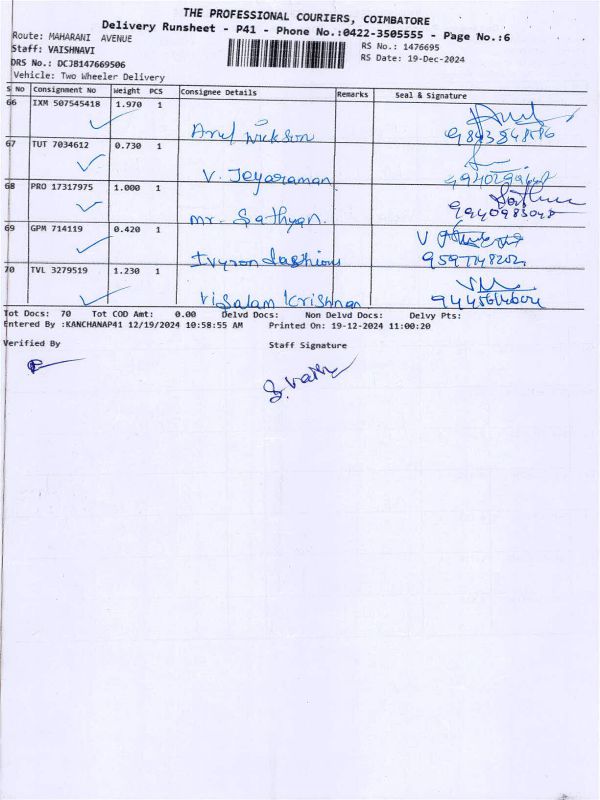 THE PROFESSIONAL COURIERS, COIMBATORE
Delivery Runsheet - P41 - Phone No.:0422-3505555 - Page No.:6
Route: MAHARANI AVENUE
RS No.: 1476695
Staff: VAISHNAVI
RS Date: 19-Dec-2024
DRS No.: DCJB147669506
Vehicle: Two Wheeler Delivery
S No Consignment No Weight PCS Consignee Details Remarks Seal & Signature
66 IXM 507545418 1.970 1
67 TUT 7034612 0.730 1
V. Jeyaraman
68 PRO 17317975 1.000 1
mr. Sathyan.
69 GPM 714119 0.420 1
70 TVL 3279519 1.230 1
Visalam Krishnan
Tot Docs: 70 Tot COD Amt: 0.00 Delvd Docs: Non Delvd Docs: Delvy Pts:
Entered By :KANCHANAP41 12/19/2024 10:58:55 AM Printed On: 19-12-2024 11:00:20
Verified By
Staff Signature